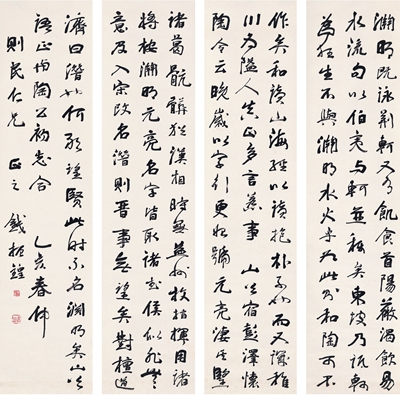 淵明既詠荆軻又有飢食首陽薇渴飲易
水流句以伯夷與荆軻並稱矣東坡乃詆軻
為狂生不與淵明水火乎為此則和陶可不
作矣和讀山海經以讀抱朴子而又深
川為隘人多言
山谷宿彭澤懷
陶令云晚歲以字行更始號元亮淒其望
諸葛骯髒猶漢相時無益州牧指揮用諸
將按淵明元亮名字皆取諸武侯似非無
意及入宋改名潛則晉事無望矣對檀道
濟曰潛也何敢望賢此時不名淵明矣山谷
語正與陶公初志合 乙亥春仲
則民仁兄 正之 錢振鍠